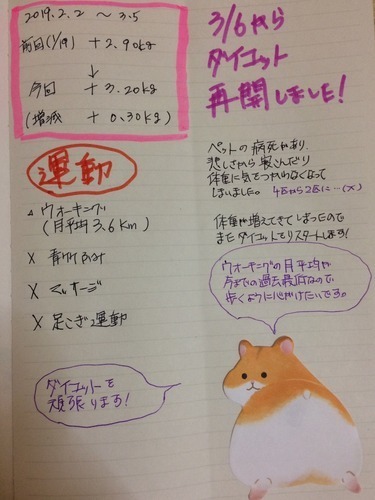 2019.2.2 ～ 3.5
前回(1/19) + 2.90kg
↓
今回 + 3.20kg
(増減 + 0.30kg)
運動
△ ウォーキング
(月平均 3.6km)
X 青竹ふみ
X マッサージ
X 足こぎ運動
ダイエットを
頑張ります!
3/6から
ダイエット
再開しました!
ペットの病死があり、
悲しさから
体重に気をつかわなくなって
しまいました。 4匹から2匹に…(×)
体重が増えてきてしまったので
またダイエットをリスタートします!
ウォーキングの月平均が
今までの過去最低なので
歩くように心がけたいです。